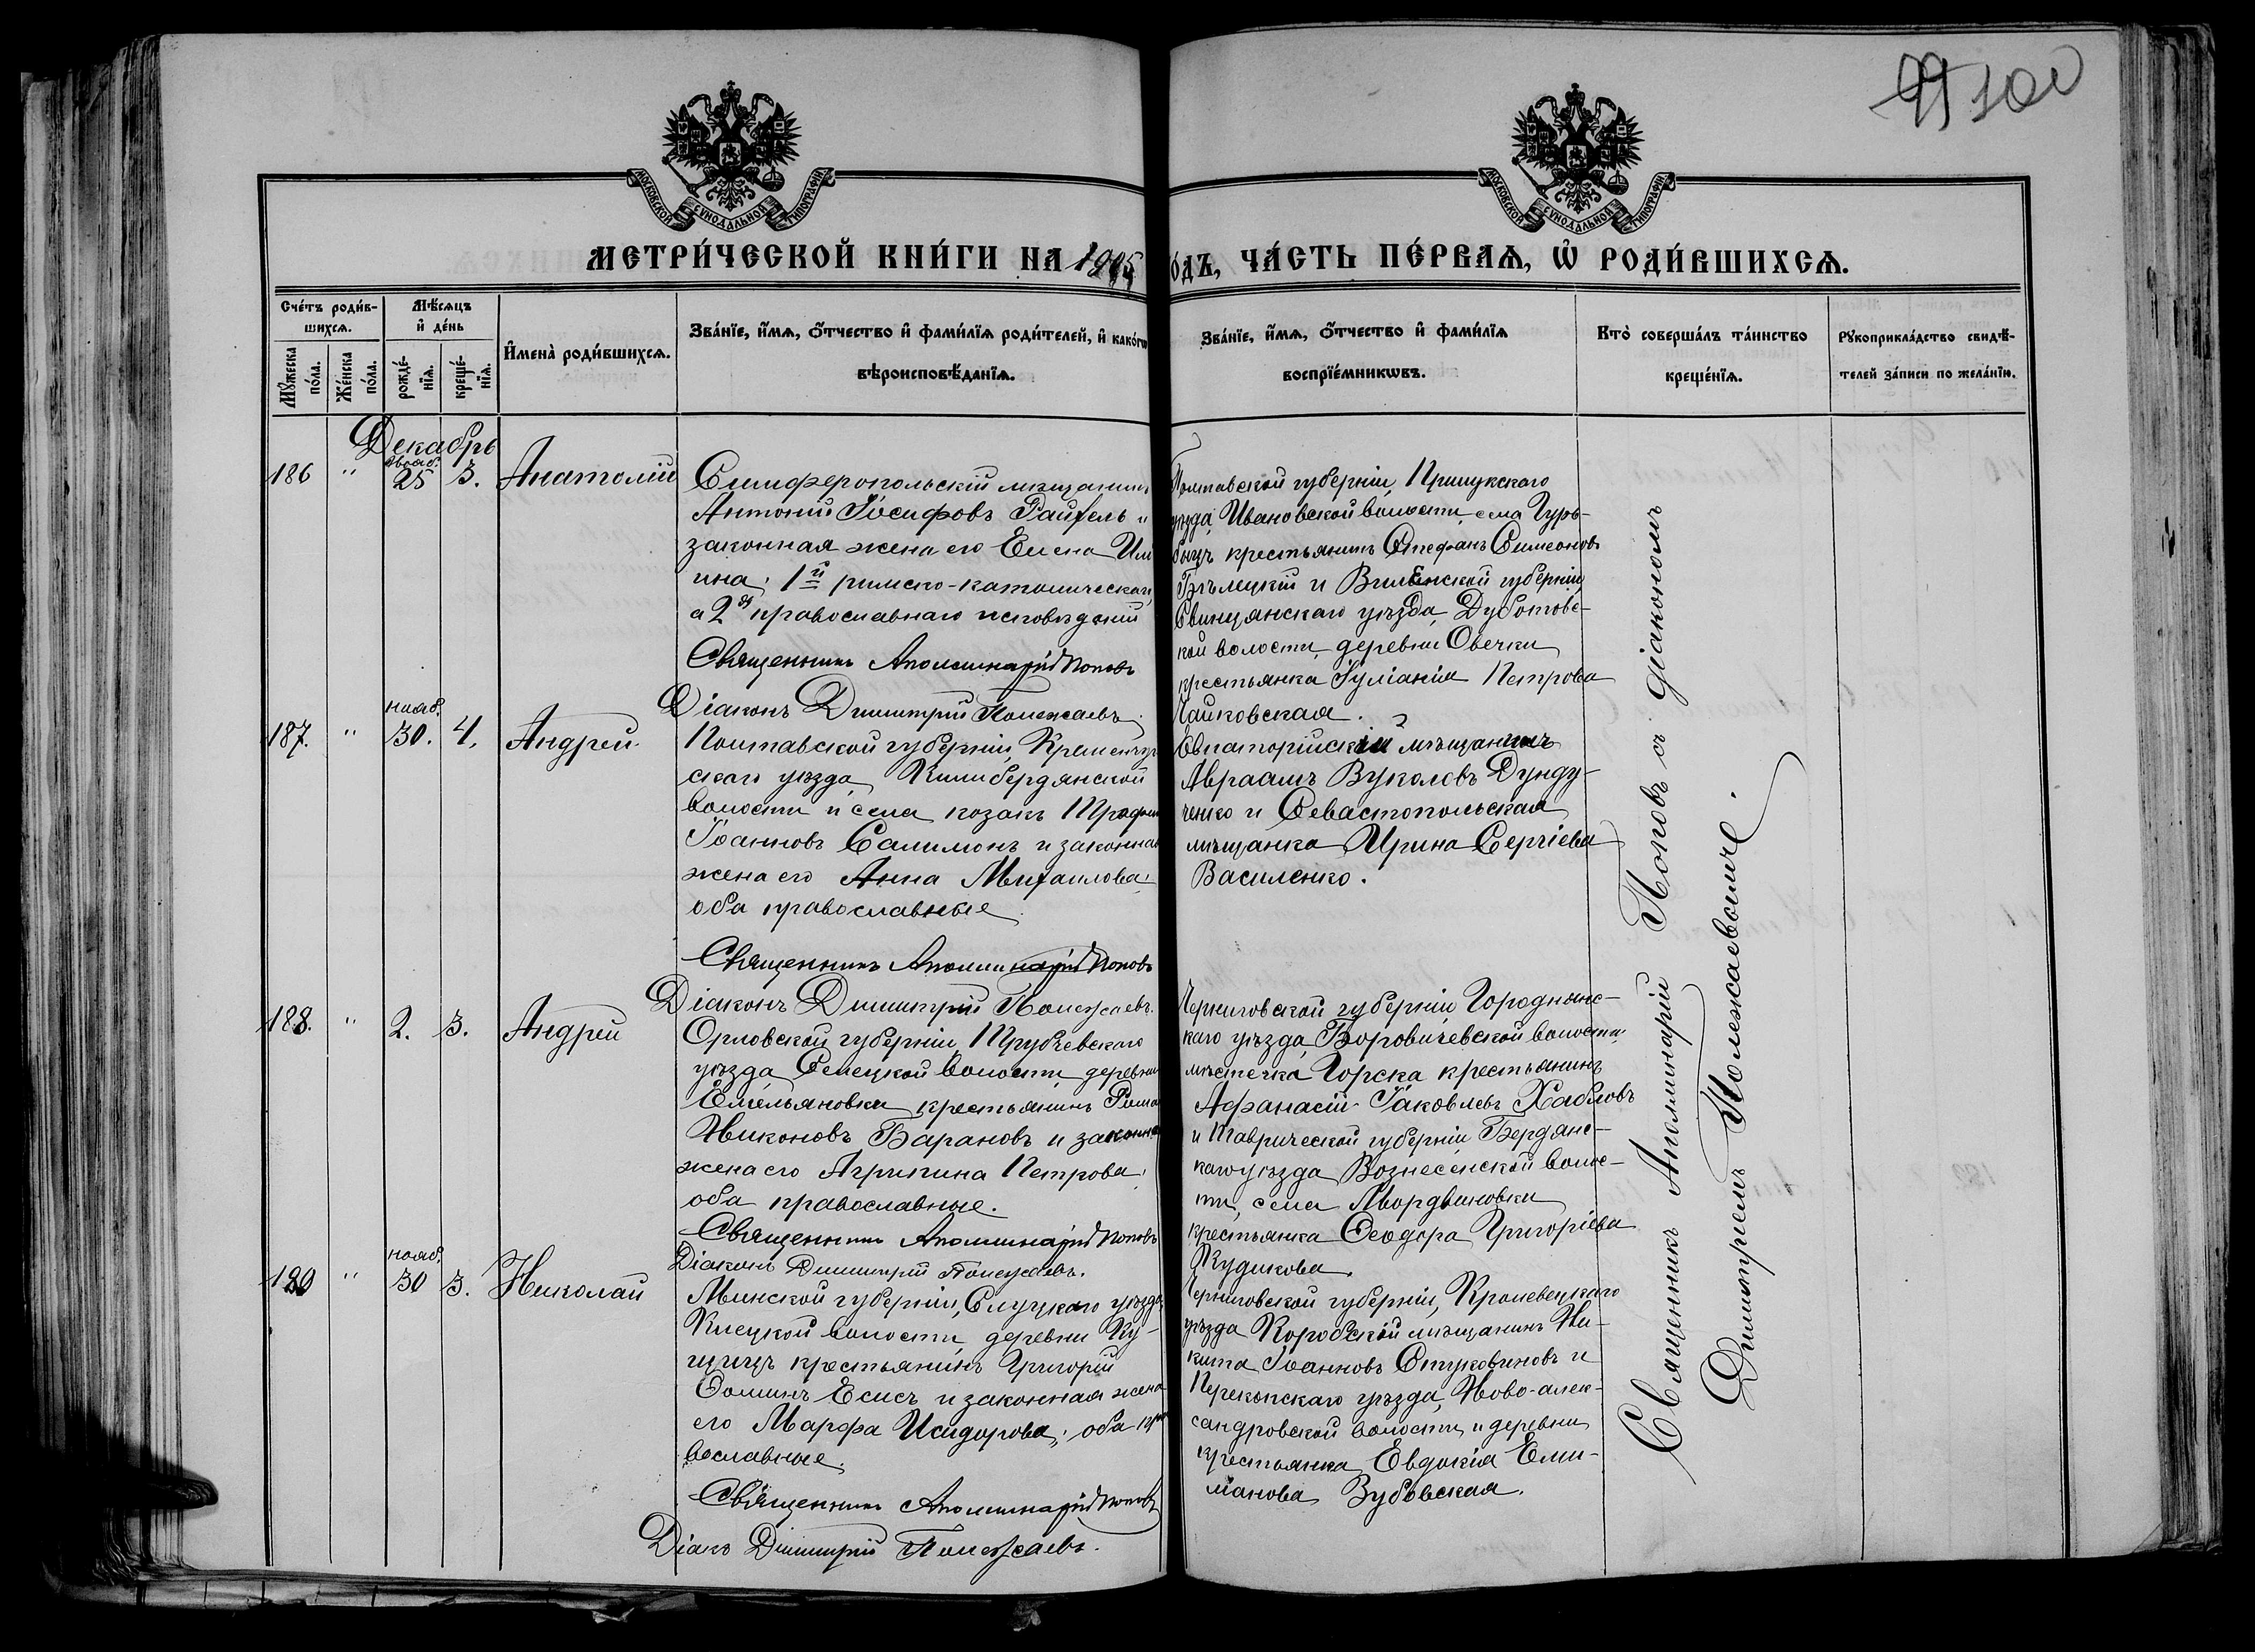 99 100
МОСКОВСКОЙ СѴНОДАЛЬНОЙ ТИПОГРАФІИ
МОСКОВСКОЙ СѴНОДАЛЬНОЙ ТИПОГРАФІИ
МЕТРИ́ЧЕСКОЙ КНИ́ГИ НА 1905
ОДЪ, ЧА́СТЬ ПЕ́РВАѦ, Ѡ҆ РОДИ́ВШИХСѦ.
Сче́тъ роди́в-
шихсѧ.
Мꙋ́жеска по́ла.
Же́нска по́ла.
Мѣ́сѧцъ
и҆ де́нь
рожде́-
нїѧ.
креще́-
нїѧ.
И҆мена̀ роди́вшихсѧ.
Зва́нїе, и҆́мѧ, ѻ҆́тчество и҆ фами́лїѧ роди́телей, и҆ како́гѡ
вѣроисповѣ́данїѧ.
Зва́нїе, и҆́мѧ, ѻ҆́тчество и҆ фами́лїѧ
воспрїе́мникѡвъ.
Кто̀ соверша́лъ та́инство
креще́нїѧ.
Рꙋкоприкла́дство свидѣ́-
телей за́писи по жела́нїю.
Декабрь
186 " нояб. 25 3. Анатолій
Симферопольскій мѣщанинъ
Антоній Іосифовъ Райхель и
законная жена его Елена Иль
ина; 1й римско-католическаго,
а 2я православнаго исповѣданій
Священникъ Аполлинарій Поповъ
Діаконъ Димитрій Полежаевъ.
Полтавской губерніи, Прилукскаго
уѣзда, Ивановской волости, села Гурь-
бицъ крестьянинъ Стефанъ Симеоновъ
Бѣлецкій и Виленской губерніи,
Свинцянскаго уѣзда, Дуботовс-
кой волости, деревни Овечки
крестьянка Іуліанія Петрова
Пайковская.
187. " нояб. 30. 4. Андрей
Полтавской губерніи, Кременчуг
скаго уѣзда, Кишбердянской
волости и села козакъ Трофим
Іоанновъ Салимонъ и законная
жена его Анна Михаилова;
оба православные.
Священникъ Аполлинарій Поповъ
Діаконъ Димитрій Полежаевъ.
Евпаторійскій мѣщанинъ
Авраамъ Вуколовъ Дунду-
ченко и Севастопольская
мѣщанка Ирина Сергіева
Василенко.
188. " 2. 3. Андрей
Орловской губерніи, Трубчевскаго
уѣзда, Селецкой волости, деревни
Емельяновки крестьянинъ
Никоновъ Барановъ и законная
жена его Агрипина Петрова;
оба православные.
Священникъ Аполлинарій Поповъ
Діаконъ Димитрій Полежаевъ.
Черниговской губерніи, Городнянс-
каго уѣзда, Боровичевской волости,
мѣстечка Горска крестьянинъ
Афанасій Іаковлевъ Хабловъ
и Таврической губерніи, Бердянс-
каго уѣзда Вознесенской волос-
ти, села Мордвиновки
крестьянка Ѳеодора Григоріева
Кудикова.
189 " нояб. 30 3. Николай
Минской губерніи, Слуцкаго уѣзда,
Клецкой волости, деревни Ку-
щицъ крестьянинъ Григорій
Ѳоминъ Есисъ и законная жена
его Марфа Исидорова; оба пра
вославные.
Священникъ Аполлинарій Поповъ
Діакъ Димитрій Полежаевъ.
Черниговской губерніи, Кролевецкаго
уѣзда Коробскій мѣщанинъ Ни-
кита Іоанновъ Стуковиновъ и
Перекопскаго уѣзда, Ново-алек-
сандровской волости и деревни
крестьянка Евдокія Еми-
ліанова Зубовская.
Священникъ Аполлинарій Поповъ съ діакономъ
Димитріемъ Полежаевымъ.